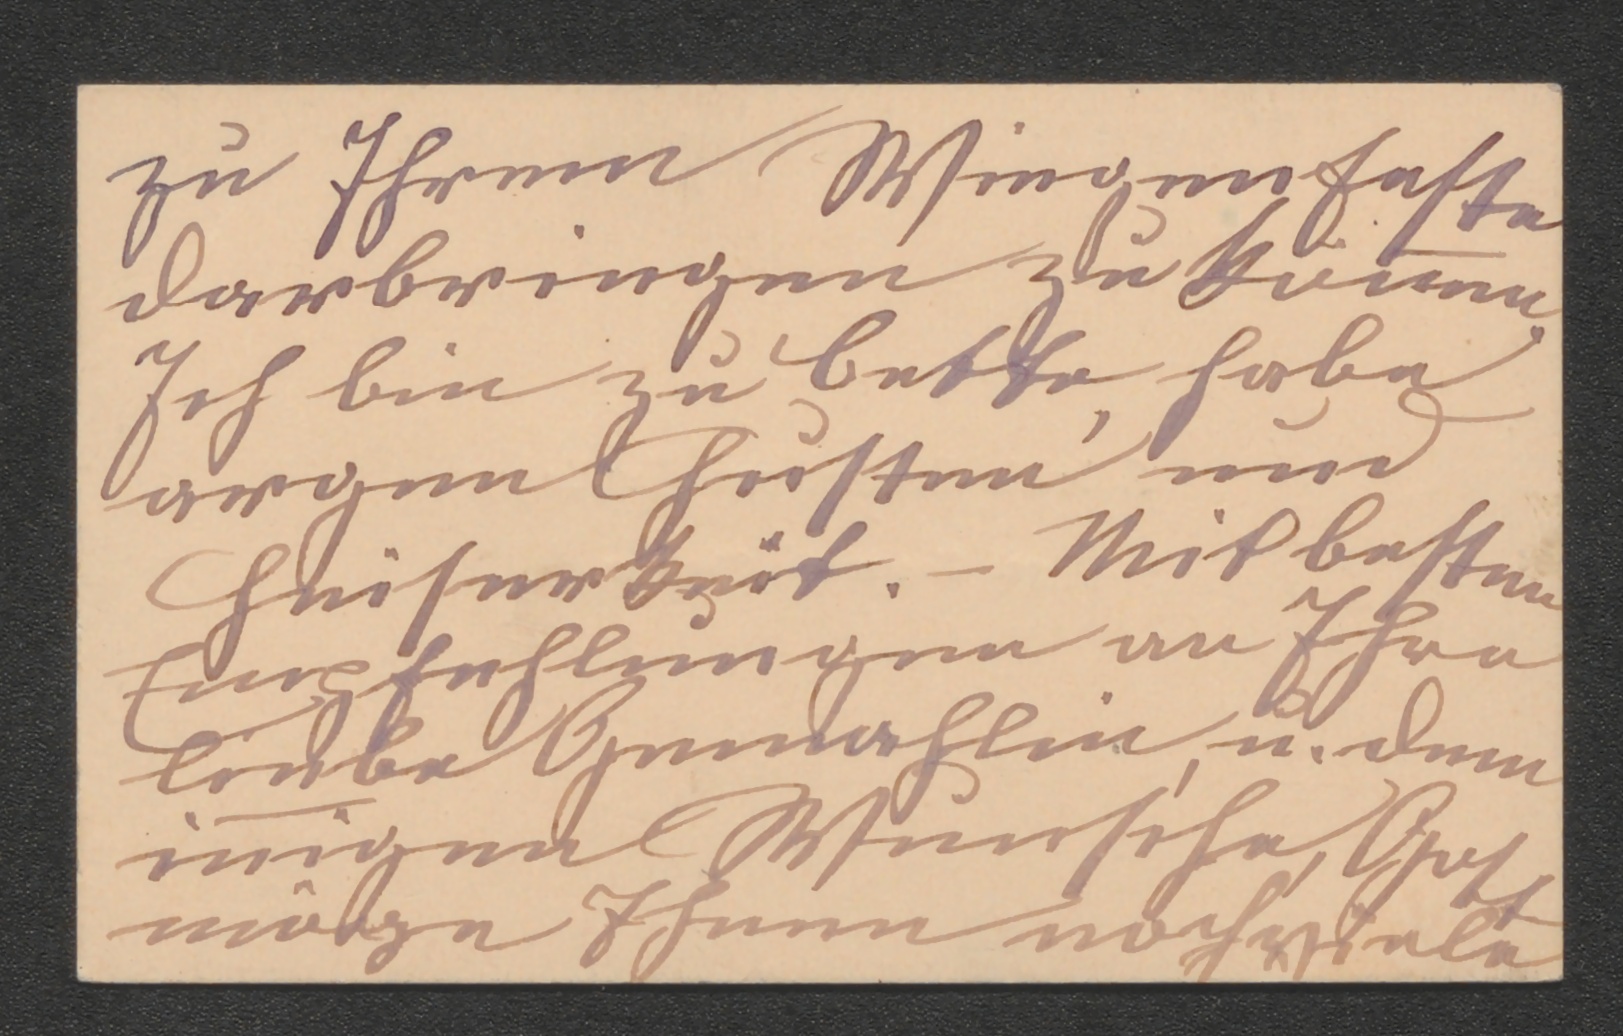 zu Ihrem Wiegenfeste
darbringen zu kom̅en.
Ich bin zu Bette, habe
argen Husten und
Heiserkeit. – Mit besten
Empfehlungen an Ihre
liebe Gemahlin, u. dem
in̅igen Wunsche, Gott
möge Ihnen noch viele